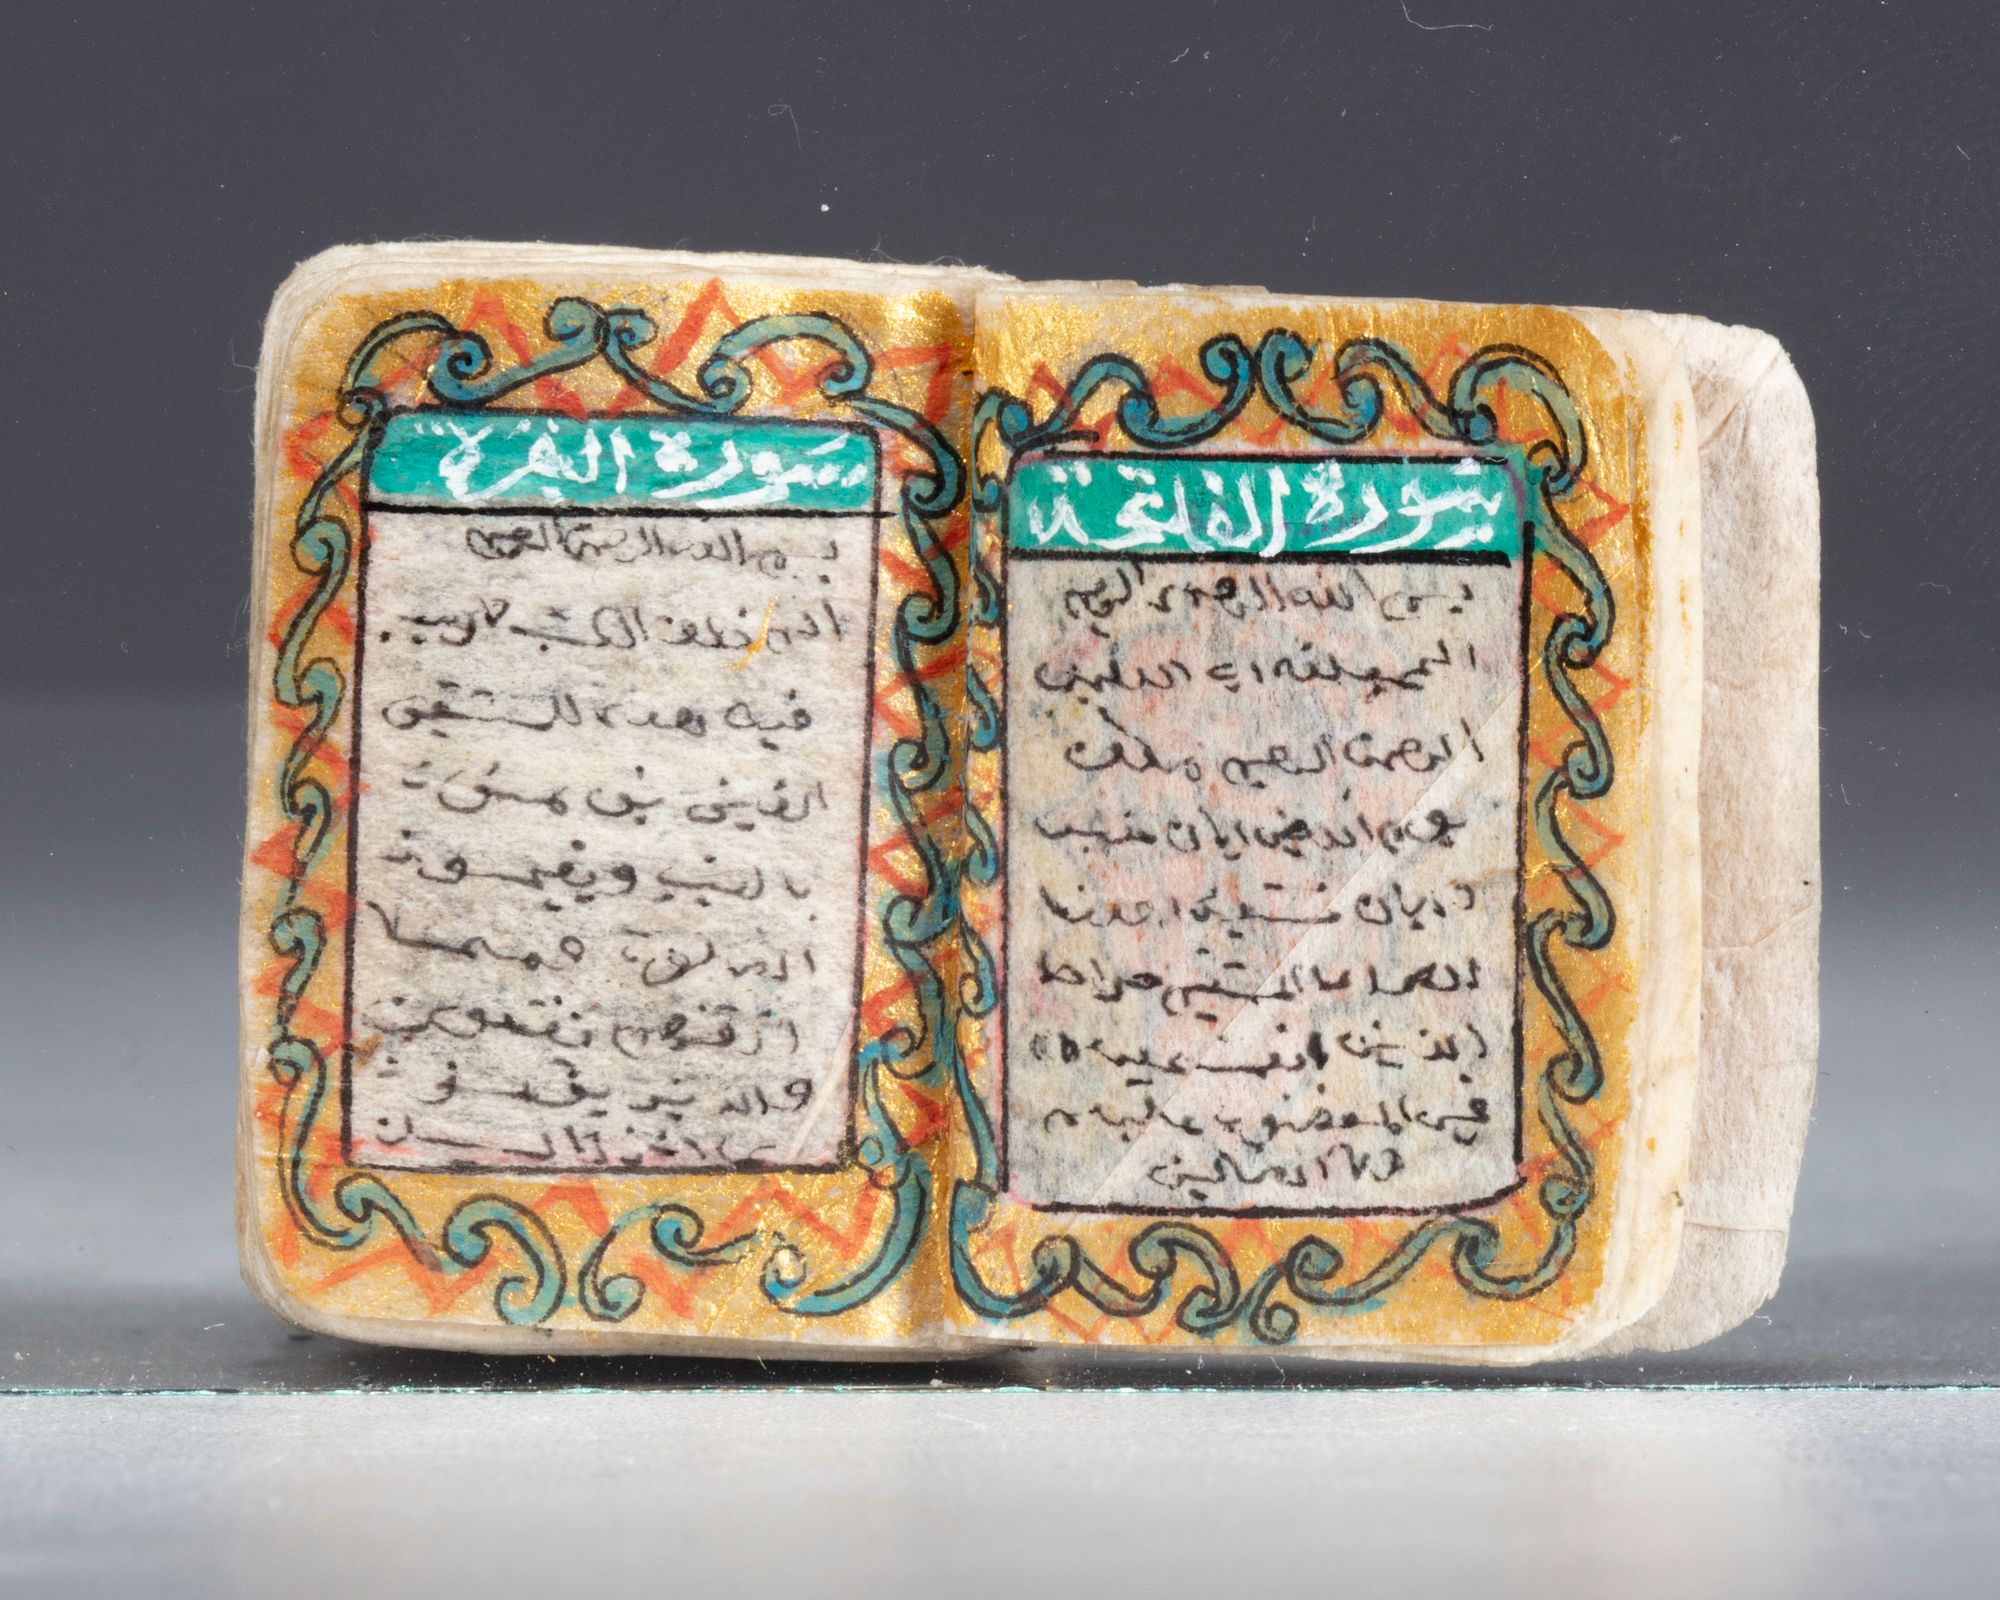 سورة الفاتحة
بسم الله الرحمن الرحيم
الحمد لله رب العلمين
الرحمن الرحيم ملك
يوم الدين اياك نعبد
واياك نستعين اهدنا
الصراط المستقيم صراط
الذين انعمت عليهم
غير المغضوب عليهم
ولا الضالين
سورة البقرة
بسم الله الرحمن الرحيم
الم ذلك الكتب لا ريب
فيه هدى للمتقين
الذين يؤمنون
بالغيب ويقيمون
الصلوة ومما
رزقنهم ينفقون
والذين يؤمنون
بما انزل اليك